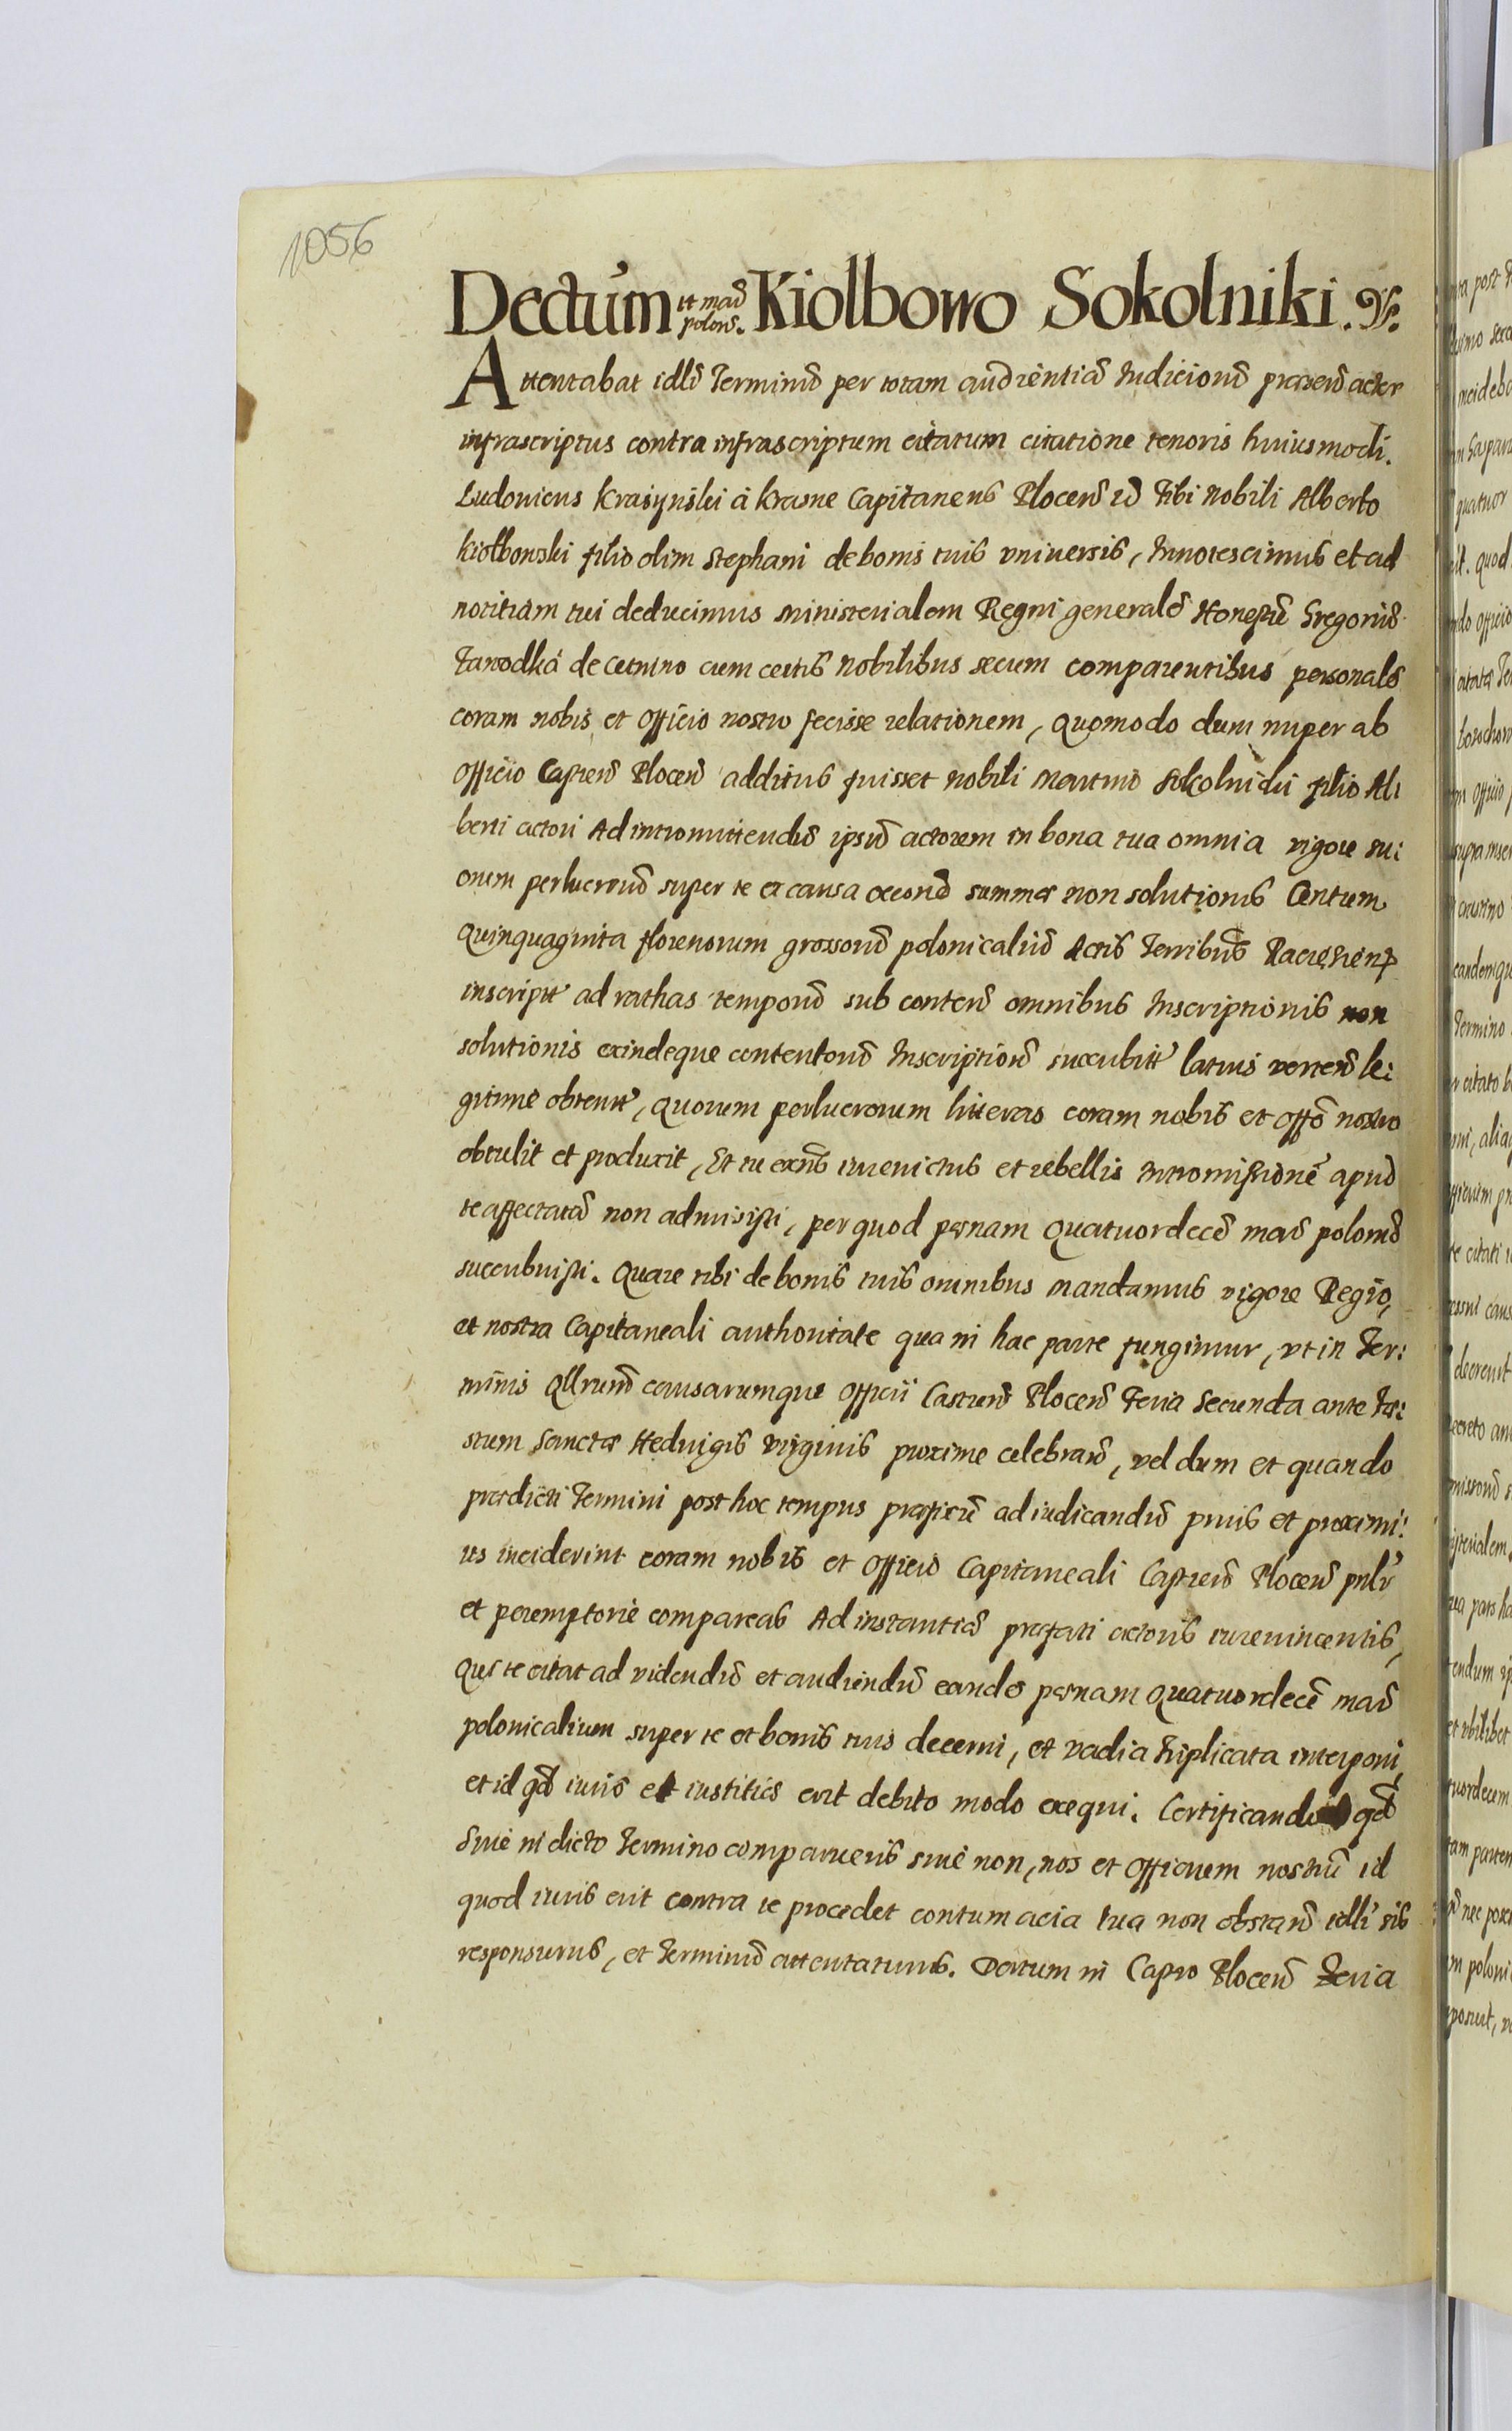 1056
Dectum et mar̄ polon̄. Kiolbowo Sokolniki.
Attentabat idl̄r Terminū per totam audientiā Iudiciorū praesen̄ actor
infrascriptus contra infrascriptum citatum citatione tenoris huiusmodi.
Ludouicus Krasynski á Krasne Capitaneus Plocen̄ Tibi Nobili Alberto
Kiolbowski filio olim Stephani de bonis tuis vniuersis, Innotescimus et ad
notitiam tui deducimus ministerialem Regni generalē Honestū Gregoriū
de cum certis Nobilibus secum comparentibus personalr̄
coram nobis et officio nostro fecisse relationem, quomodo dum nuper ab
officio Castren̄ Plocen̄ additus fuisset Nobili Martino Sokolnicki filio Al:
berti actori Ad intromittendū ipsū actorem in bona tua omnia vigore
onem perlucrorū super te ex causa summae non solutionis Centum
Quinquaginta florenorum grossorū polonicaliū Actis Terribus
inscript̄ ad rathas temporū sub conten̄ omnibus Inscriptionis non
solutionis exindeque contentorū Inscriptiōr̄ succubitt̄ latius vertend̄ le:
gitime obtent̄, quorum perlucrorum litteras coram nobis et offō nostro
obtulit et produxit, Et tu exnūs iureuictus et rebellis Intromissionē apud
te affectatā non admisisti, per quod paenam Quatuordecē mar̄ polonr̄
succubuisti. Quare tibi de bonis tuis omnibus mandamus vigore Regio,
et nostra Capitaneali authoritate qua in hac parte fungimur, vt in Ter:
minis Qllrumō causarumque officii Castren̄ Plocen̄ feria Secunda ante fae:
stum Sanctae Heduigis Virginis proxime celebran̄, vel dum et quando
praedicti Termini post hoc tempus praefixū ad iudicandū prius et proximi:
us inciderint coram nobis et officio Capitaneali Castren̄ Plocen̄ pnlr̄
et peremptorie compareas Ad instantiā praefati actoris iureuincentis,
Qui te citat ad videndū et audiendū eandē paenam Quatuordecē mar̄
polonicalium super te et bonis tuis decerni, et vadia triplicata interponi,
et id qd̄ iuris et iustitiae erit debito modo exequi. Certificando qd̄
siue in dicto Termino comparueris siue non, nos et officium nostrū id
quod iuris erit contra te procedet contumacia tua non obstan̄ idl̄r sis
responsurus, et Terminū attentaturus. Datum in Castro Plocen̄ feria